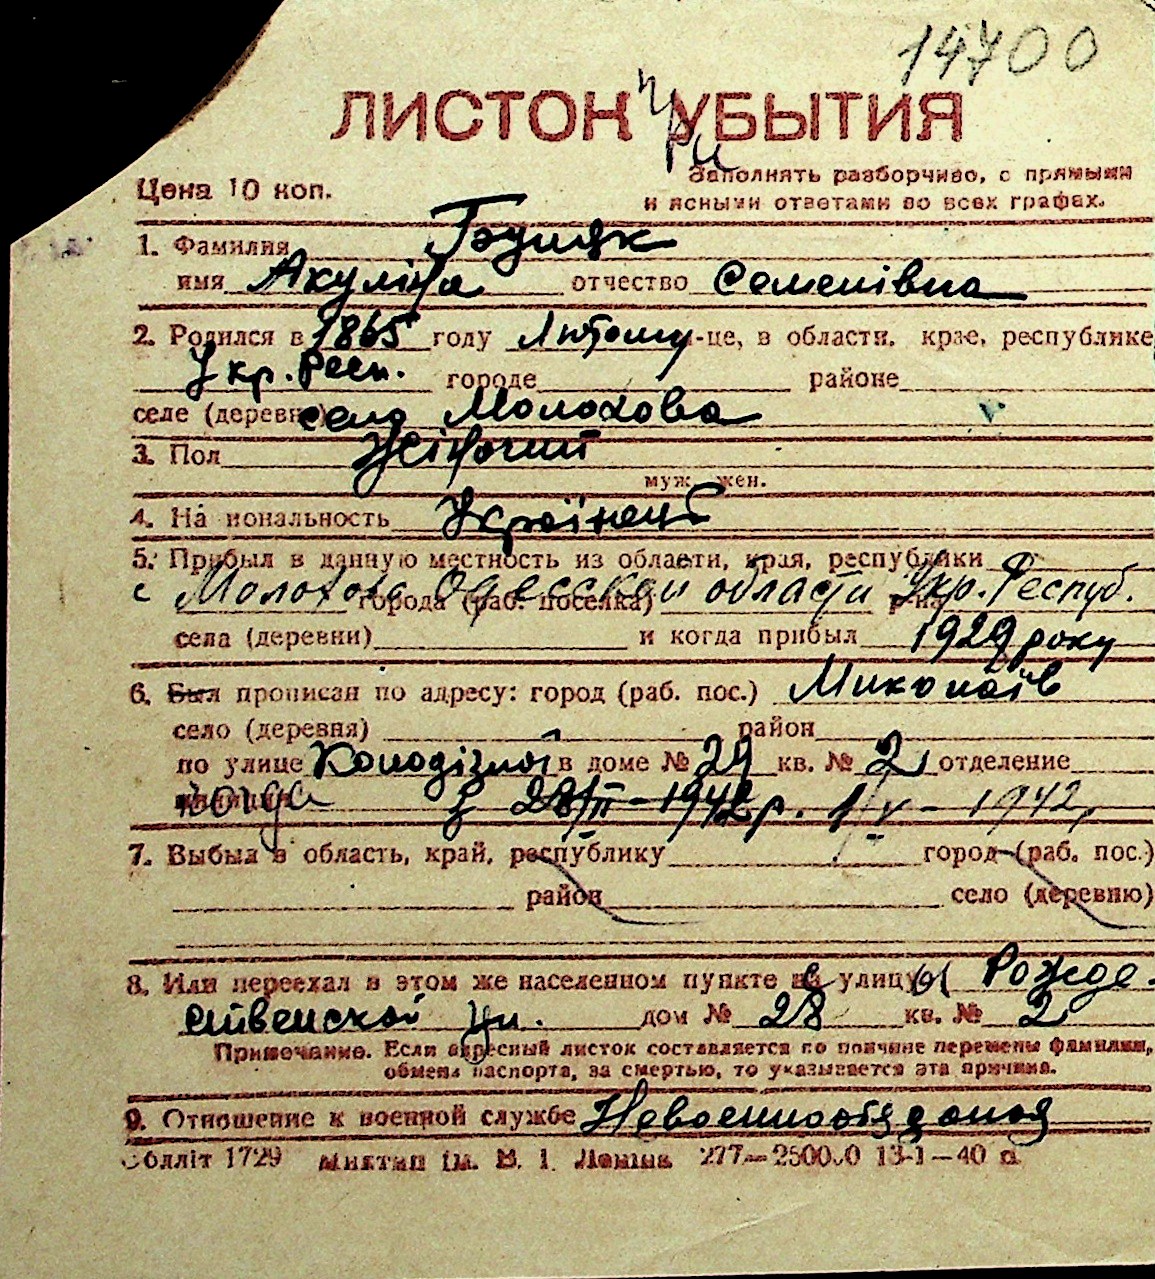 14700
ЛИСТОК УБЫТИЯ
при
Цена 10 коп.
Заполнять разборчиво, с прямыми
и ясными ответами во всех графах.
1. Фамилия
имя Акуліна отчество Семенівна
2. Родился в 1865 году Лютому -це, в области, крае, республике
Укр. Респ. городе районе
селе (деревне) село Молохова
3. Пол Жіночий
муж. жен.
4. Национальность Українец
5. Прибыл в данную местность из области, края, республики
с Молохова Одесской области Укр. Респуб.
города (раб. поселка) р-на
села (деревни) и когда прибыл 1929 року
6. Был прописан по адресу: город (раб. пос.) Миколаїв
село (деревня) район
по улице Колодізної в доме № 29 кв. № 2 отделение
когда з 28/II - 1942 р. 1/V - 1942,
7. Выбыл в область, край, республику город (раб. пос.)
район село (деревню)
8. Или переехал в этом же населенном пункте с улицы Рожде-
ственской ул. дом № 28 кв. № 2
Примечание. Если адресный листок составляется по причине перемены фамилии,
обмена паспорта, за смертью, то указывается эта причина.
9. Отношение к военной службе Невоеннообязаная
Облліт 1729 Миктип ім. В. І. Леніна 277—25000 13-1—40 р.